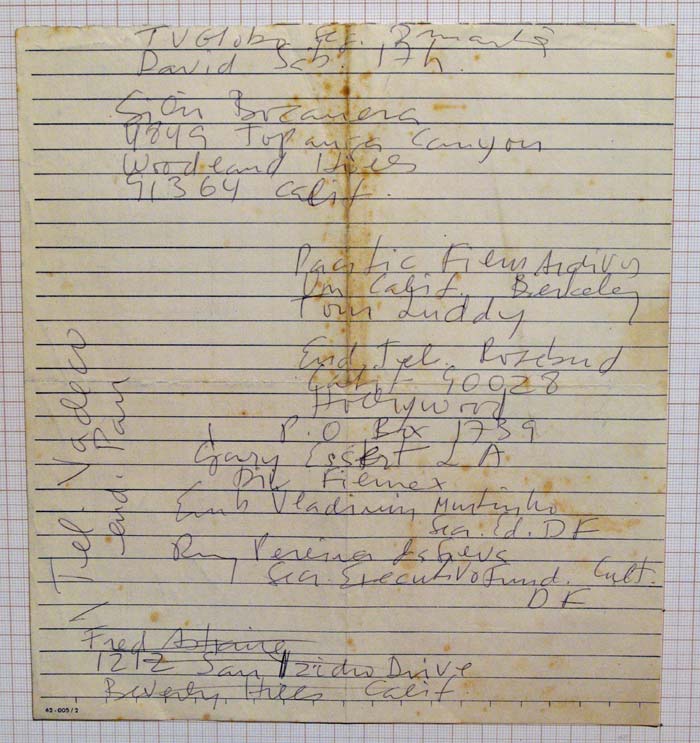 TV Globo
David Sab. 17h.
9849 Topanga Canyon
Woodland Hills
91364 Calif.
Pacific Film Archives
Un Calif. Berkeley
Tom Luddy
End. Tel. Rosebud
Calif - 90028
Hollywood
P.O Box 1739
Gary Essert L A
Dir Filmex
Emb Vladimir Murtinho
Sec. Ed. DF
Ruy Pereira da Silva
Sec. Executivo Fund. Cult.
DF
Tel. Vadeco
end. Pan
Fred Astaire
1212 San Izidro Drive
Beverly Hills Calif
42-005/2